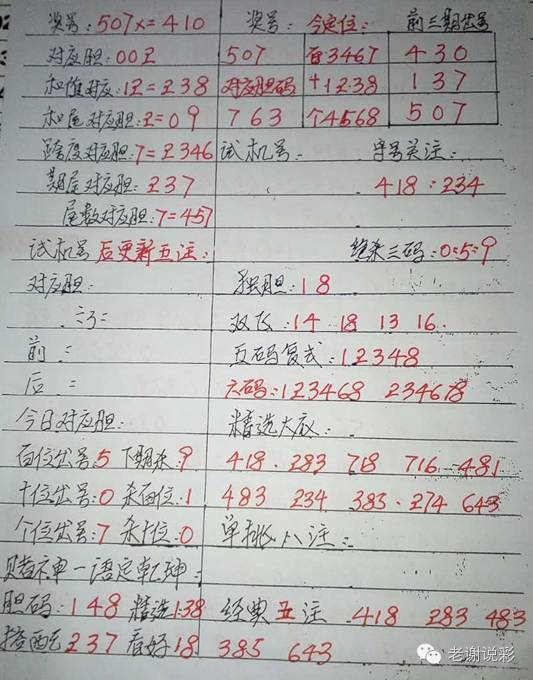 奖号:507x=410 奖号: 今定位: 前三期出号
对应胆:002 507 百3467 430
和值对应:12=238 对应胆码 十1238 137
和尾对应胆:2=09 763 个4568 507
跨度对应胆:7=2346 试机号: 字号关注:
期尾对应胆:237 418:234
尾数对应胆:7=457
试机号后更新五注: 绝杀三码:0:5:9
对应胆: 独胆:18
双飞:14 18 13 16
前: 五码复式:12348
后: 六码:123468 234678
今日对应胆: 精选大底:
百位出号:5 下期杀:9 418. 283 718 716 481
十位出号:0 杀百位:1 483 234 383. 274 643
个位出号:7 杀十位:0 单挑八注:
赌神一语定乾坤:
胆码:148 精选:138 经典五注 418 283 483
搭配237 看好18 385 643
老谢说彩